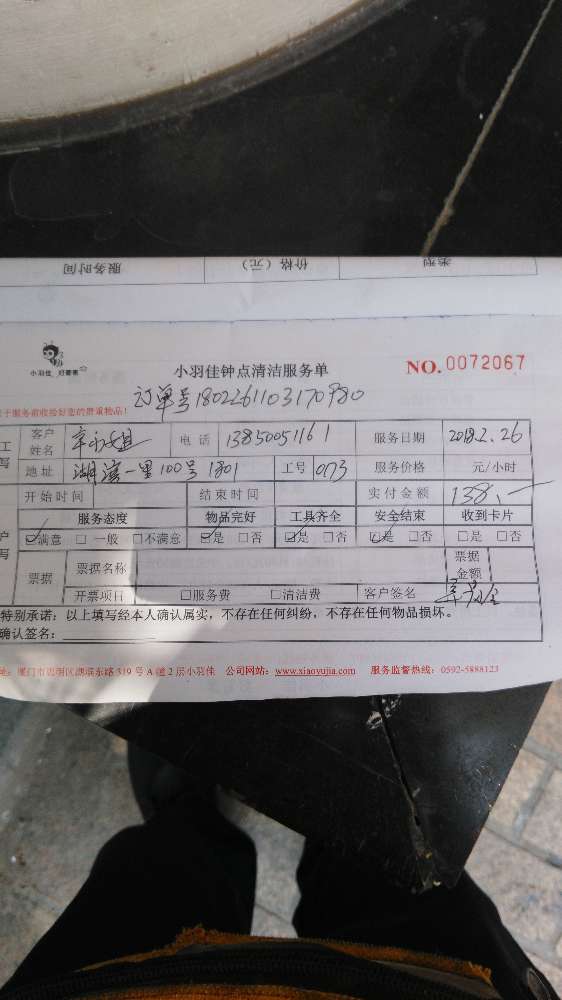 类型 价格（元） 服务时间
小羽佳，好管家
小羽佳钟点清洁服务单 NO.0072067
订单号180226110317098 0
于服务前收捡好您的贵重物品！
工 客户姓名 电话 13850051161 服务日期 2018.2.26
写 地址 湖滨一里100号1801 工号 073 服务价格 元/小时
开始时间 结束时间 实付金额 138.—
服务态度 物品完好 工具齐全 安全结束 收到卡片
户 ☑满意 □一般 □不满意 ☑是 □否 ☑是 □否 ☑是 □否 □是 □否
写 票据 票据名称 票据金额
开票项目 □服务费 □清洁费 客户签名
特别承诺：以上填写经本人确认属实，不存在任何纠纷，不存在任何物品损坏。
确认签名：
址：厦门市思明区湖滨东路319号A幢2层小羽佳 公司网站：www.xiaoyujia.com 服务监督热线：0592-5888123